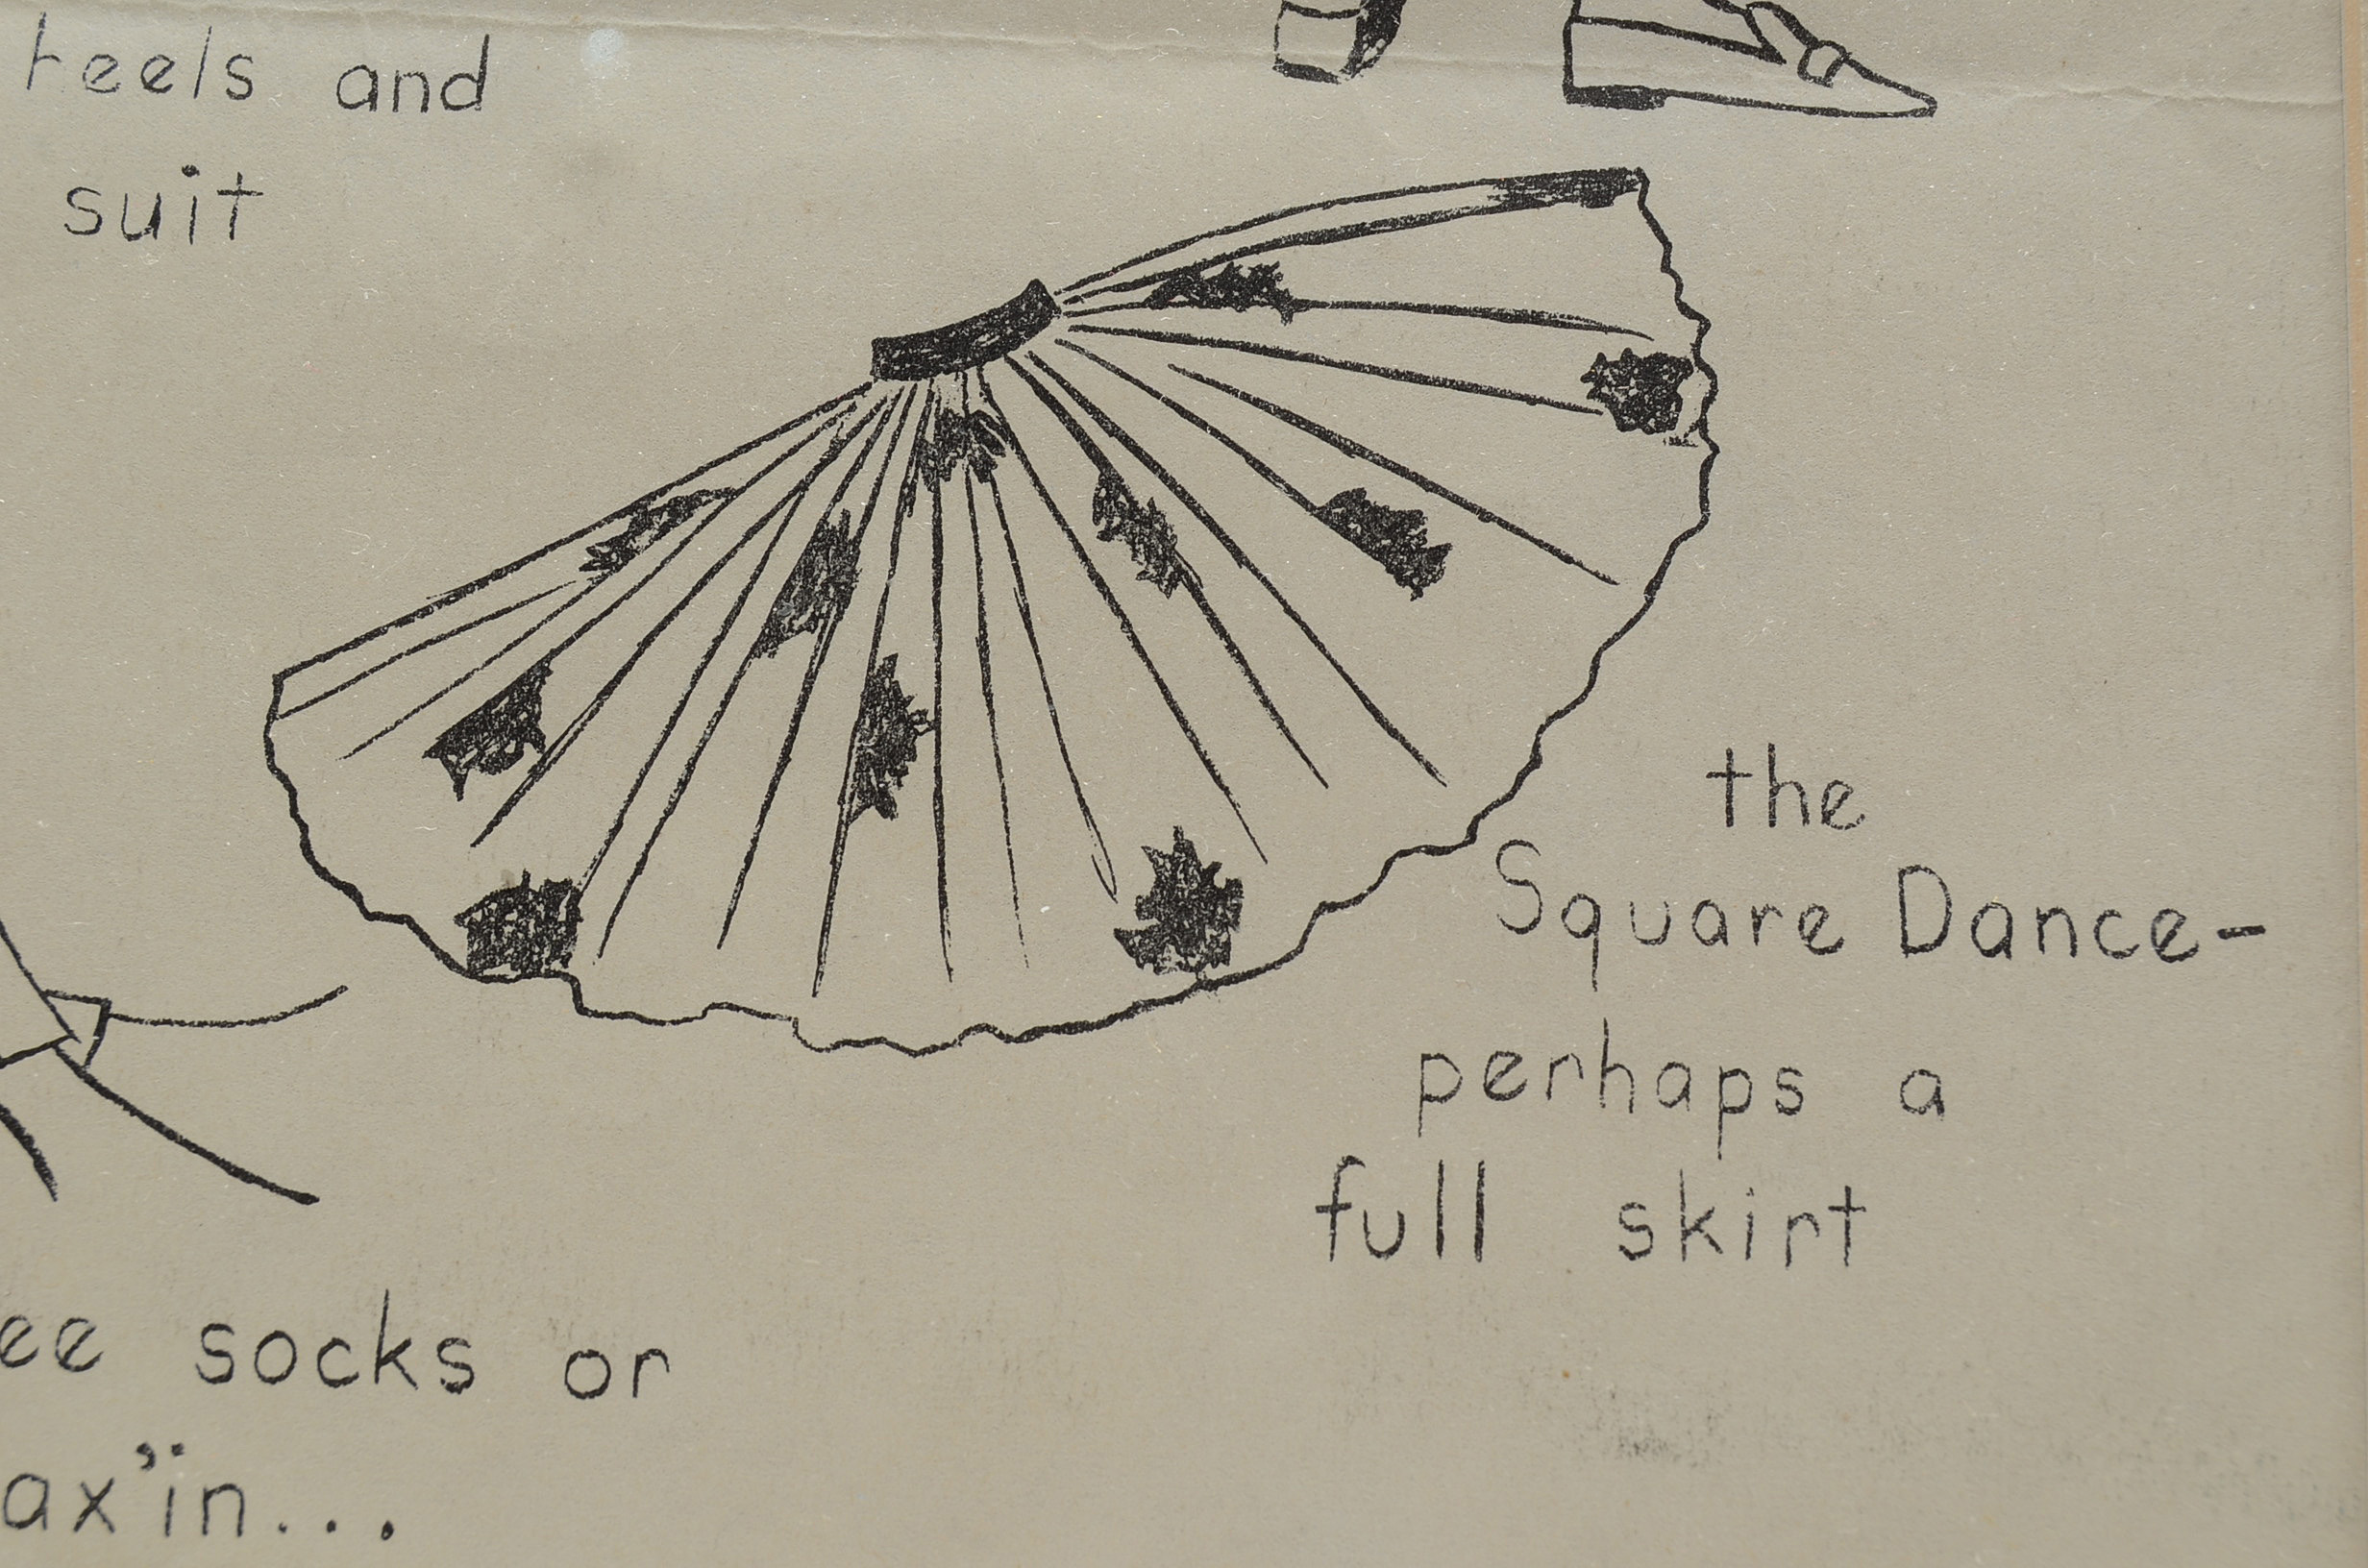 heels and
suit
the
Square Dance-
perhaps a
full skirt
socks or